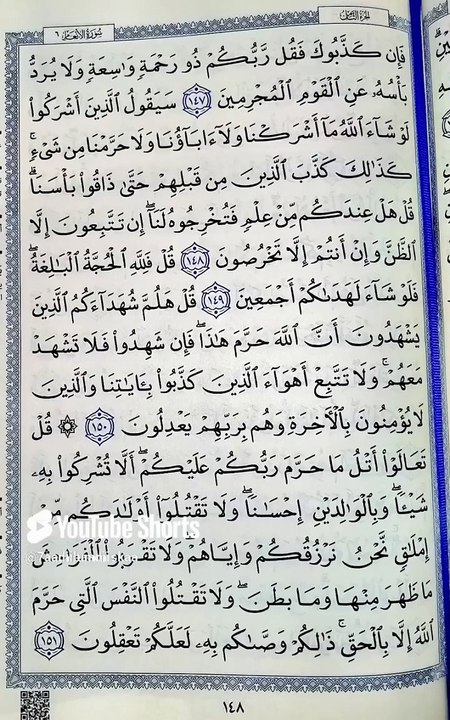 الجزء الثامن
سورة الأنعام ٦
فَإِن كَذَّبُوكَ فَقُل رَّبُّكُمْ ذُو رَحْمَةٍ وَاسِعَةٍ وَلَا يُرَدُّ
بَأْسُهُۥ عَنِ ٱلْقَوْمِ ٱلْمُجْرِمِينَ ١٤٧ سَيَقُولُ ٱلَّذِينَ أَشْرَكُوا۟
لَوْ شَآءَ ٱللَّهُ مَآ أَشْرَكْنَا وَلَآ ءَابَآؤُنَا وَلَا حَرَّمْنَا مِن شَىْءٍ ۚ
كَذَٰلِكَ كَذَّبَ ٱلَّذِينَ مِن قَبْلِهِمْ حَتَّىٰ ذَاقُوا۟ بَأْسَنَا ۗ
قُلْ هَلْ عِندَكُم مِّنْ عِلْمٍ فَتُخْرِجُوهُ لَنَآ ۖ إِن تَتَّبِعُونَ إِلَّا
ٱلظَّنَّ وَإِنْ أَنتُمْ إِلَّا تَخْرُصُونَ ١٤٨ قُلْ فَلِلَّهِ ٱلْحُجَّةُ ٱلْبَٰلِغَةُ ۖ
فَلَوْ شَآءَ لَهَدَىٰكُمْ أَجْمَعِينَ ١٤٩ قُلْ هَلُمَّ شُهَدَآءَكُمُ ٱلَّذِينَ
يَشْهَدُونَ أَنَّ ٱللَّهَ حَرَّمَ هَٰذَا ۖ فَإِن شَهِدُوا۟ فَلَا تَشْهَدْ
مَعَهُمْ ۚ وَلَا تَتَّبِعْ أَهْوَآءَ ٱلَّذِينَ كَذَّبُوا۟ بِـَٔايَٰتِنَا وَٱلَّذِينَ
لَا يُؤْمِنُونَ بِٱلْـَٔاخِرَةِ وَهُم بِرَبِّهِمْ يَعْدِلُونَ ١٥٠ ۞ قُلْ
تَعَالَوْا۟ أَتْلُ مَا حَرَّمَ رَبُّكُمْ عَلَيْكُمْ ۖ أَلَّا تُشْرِكُوا۟ بِهِۦ
شَيْـًٔا ۖ وَبِٱلْوَٰلِدَيْنِ إِحْسَٰنًا ۖ وَلَا تَقْتُلُوٓا۟ أَوْلَٰدَكُم مِّنْ
إِمْلَٰقٍ ۖ نَّحْنُ نَرْزُقُكُمْ وَإِيَّاهُمْ ۖ وَلَا تَقْرَبُوا۟
مَا ظَهَرَ مِنْهَا وَمَا بَطَنَ ۖ وَلَا تَقْتُلُوا۟ ٱلنَّفْسَ ٱلَّتِى حَرَّمَ
ٱللَّهُ إِلَّا بِٱلْحَقِّ ۚ ذَٰلِكُمْ وَصَّىٰكُم بِهِۦ لَعَلَّكُمْ تَعْقِلُونَ ١٥١
١٤٨
YouTube Shorts